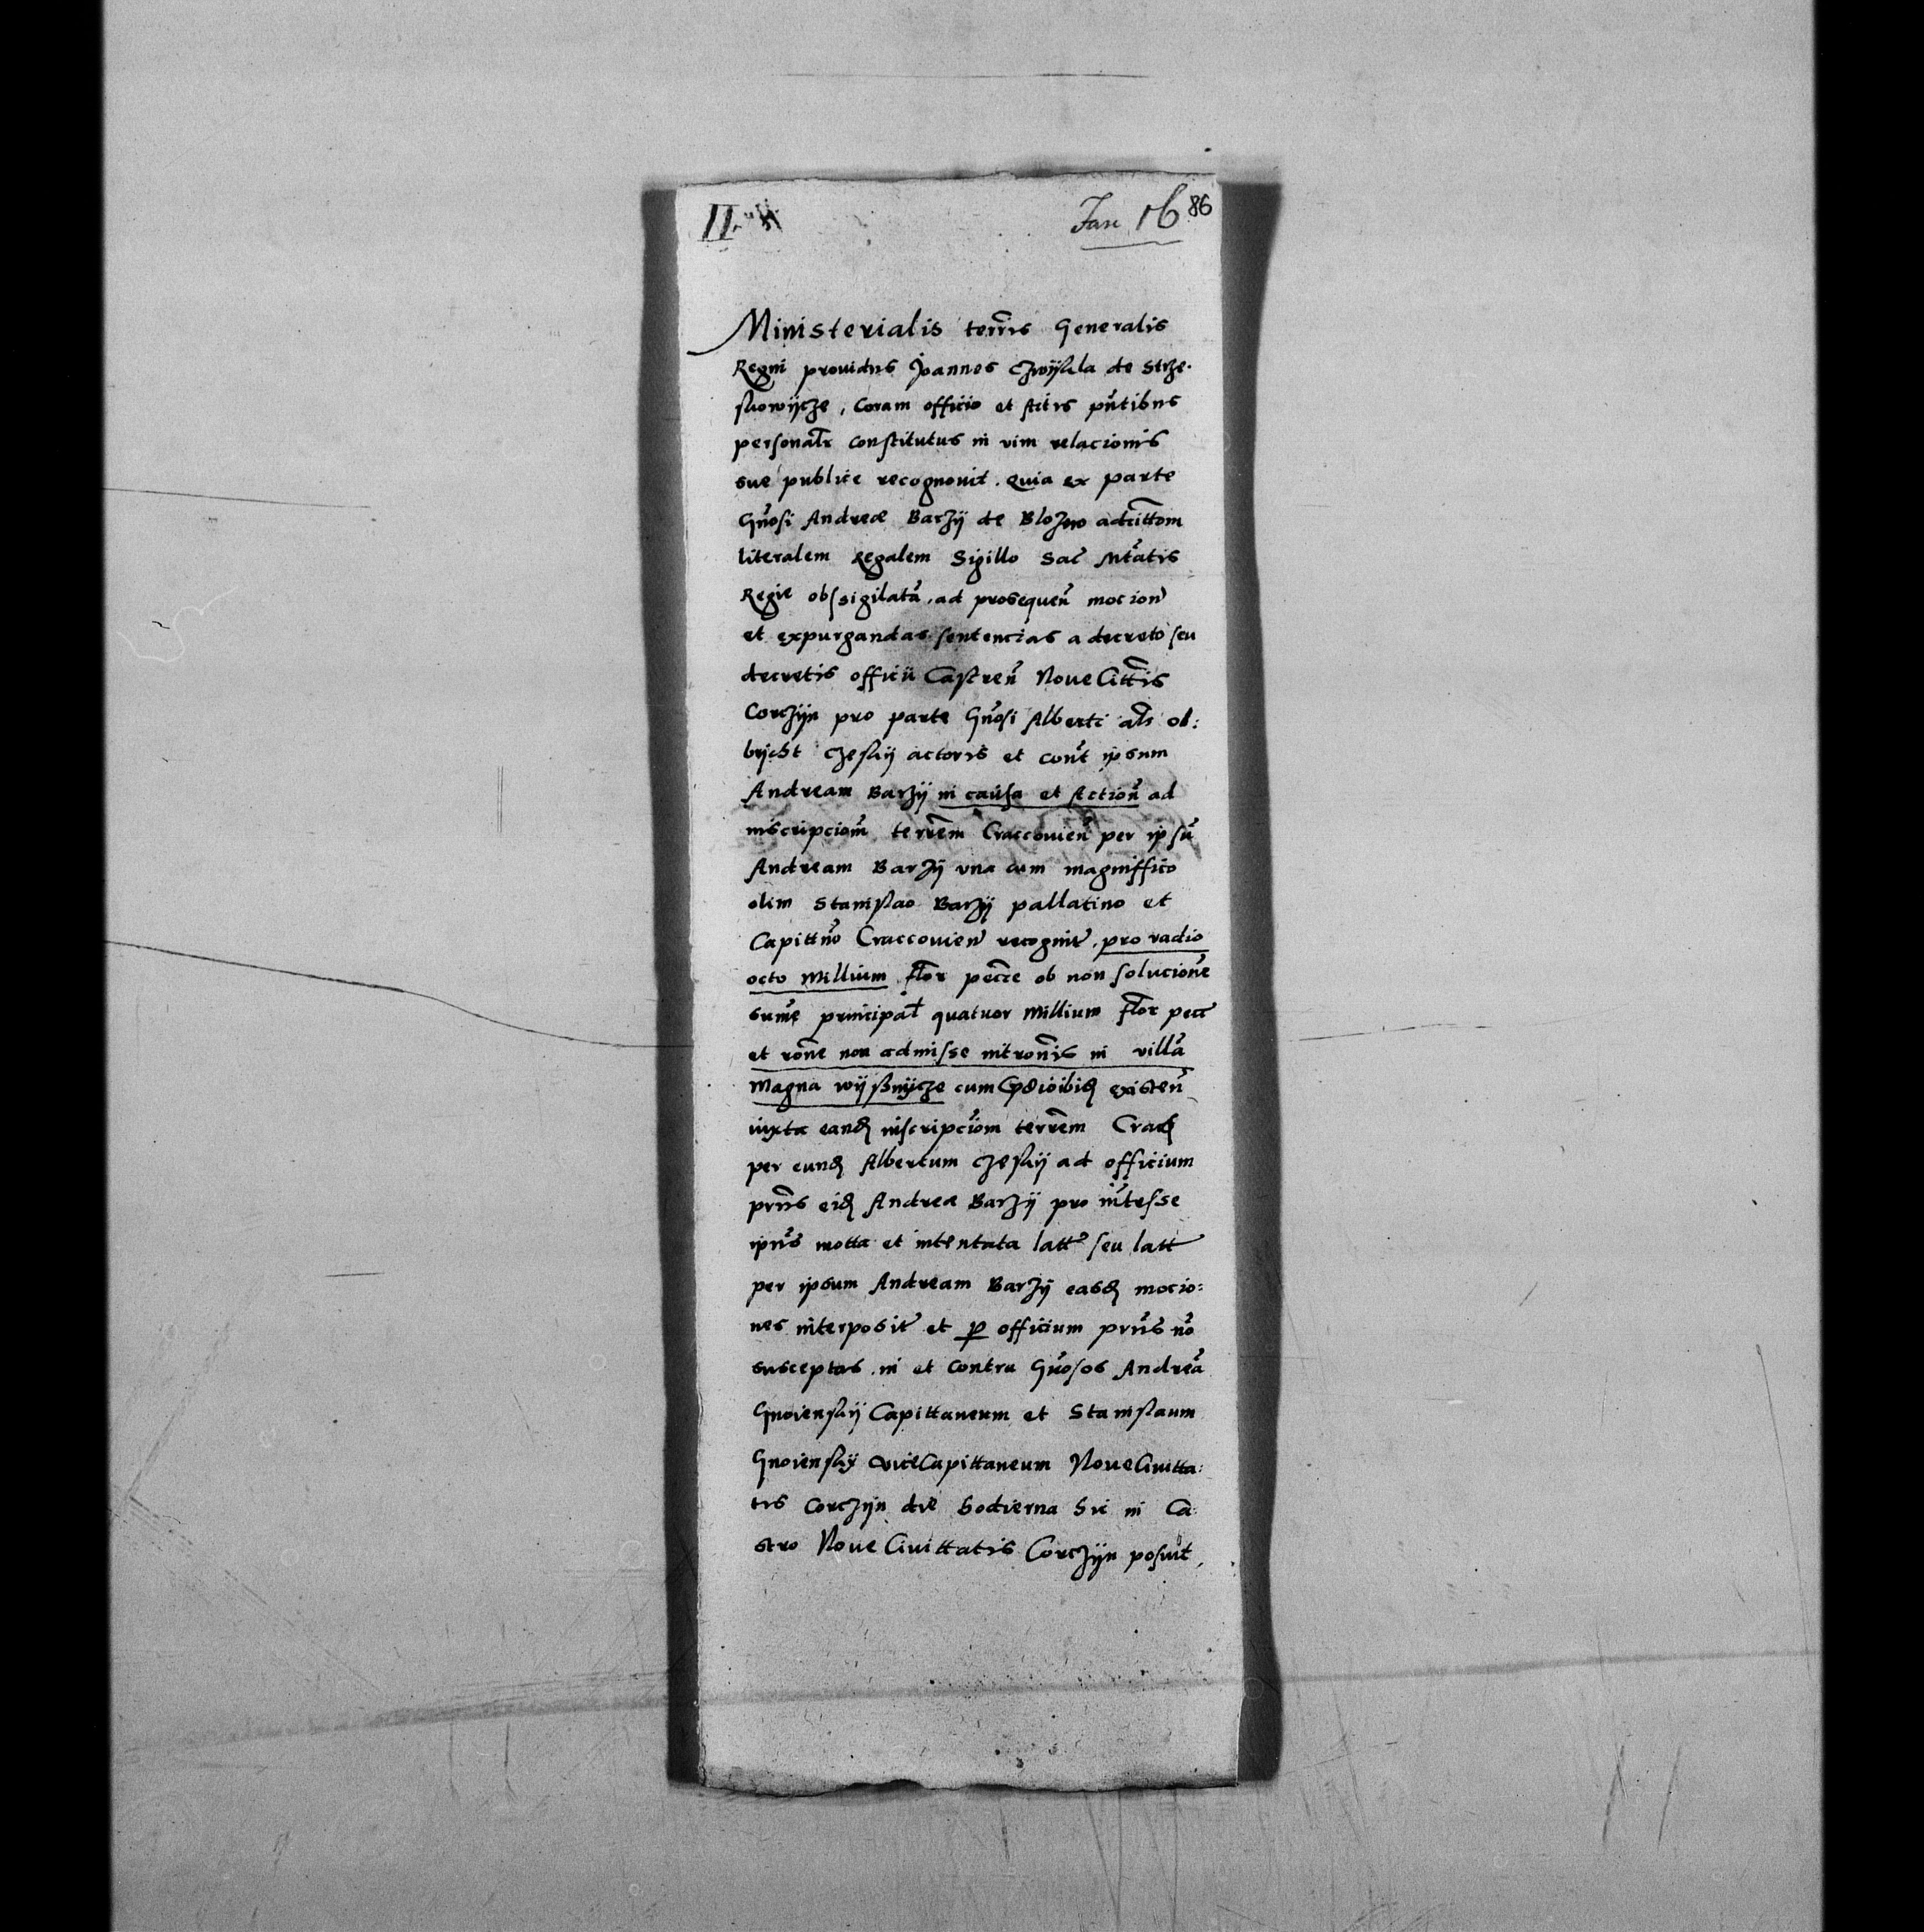 II.
Jan 16 86
Ministerialis terrīs Generalis
Regni providus Joannes Czwijkla de Strze-
skowijcze, Coram officio et Actis pn̄tibus
personalr̄ constitutus in vim relacionis
sue publice recognovit. Quia ex parte
Gn̄osi Andreæ Barzij de Blozwo adcītt̄om
literalem Regalem Sigillo Sac̄ Mt̄atis
Regie obssigilatā, ad prosequen̄ mocion̄
et expurgandas sentencias a decreto seu
decretis officii Castren̄ Noue Citt̄is
Corczijn pro parte Gn̄osi Alberti al̄s ol:
brijcht Czeskij actoris et cont̄ ipsum
Andream Barzij in causa et Action̄ ad
inscripciom̄ terrēm Craccouien̄ per ipsū
Andream Barzij una cum magniffico
olim Stanislao Barzij pallatino et
Capittn̄o Craccouien̄ recognit̄, pro vadio
octo Millium flōr pecc̄e ob non solucione̅
sum̄e principal̄ quatuor Millium flōr pecc̄
et rōne non admisse intromīs in villā
Magna wijsznijcze cum existen̄
iuxta eand̄ inscripciom̄ terrēm Crac̄
per eund̄ Albertum Czeskij ad officium
prn̄s eid̄ Andreæ Barzij pro int̄esse
ipsīus motta et intentata latt̄ seu latt̄
per ipsum Andream Barzij easd̄ mocio:
nes interposit̄ et ꝑ officium prn̄s nō
susceptas. in et contra Gn̄osos Andreā
Gnoienskij Capittaneum et Stanislaum
Gnoienskij viceCapittaneum Noue Civitta:
tis Corczijn die hodierna hic in Ca
stro Noue Civittatis Corczijn posuit,